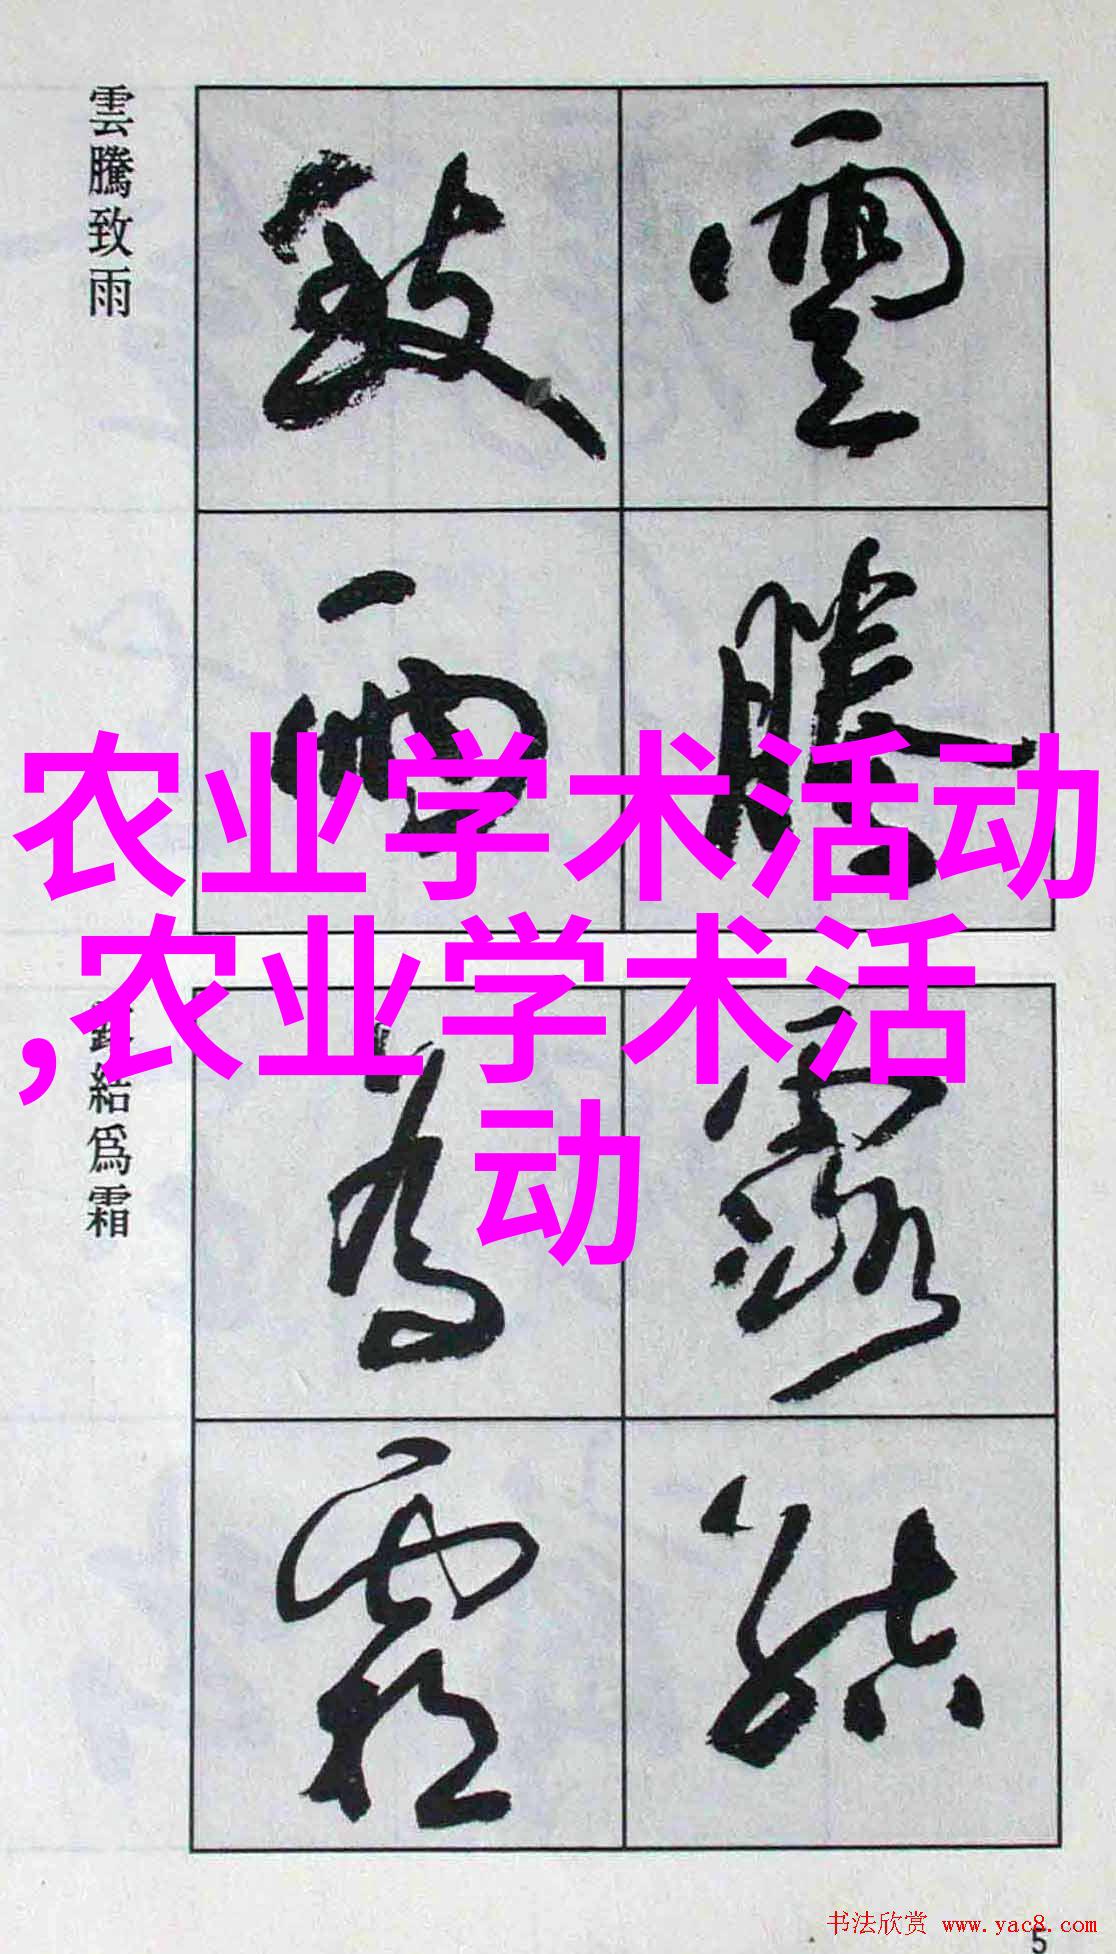 雲騰致雨
雲
騰
致
雨
農业学术活动
,农业学术活
动
結爲霜
露
結
爲
霜
书法欣赏 www.yac8.com
5